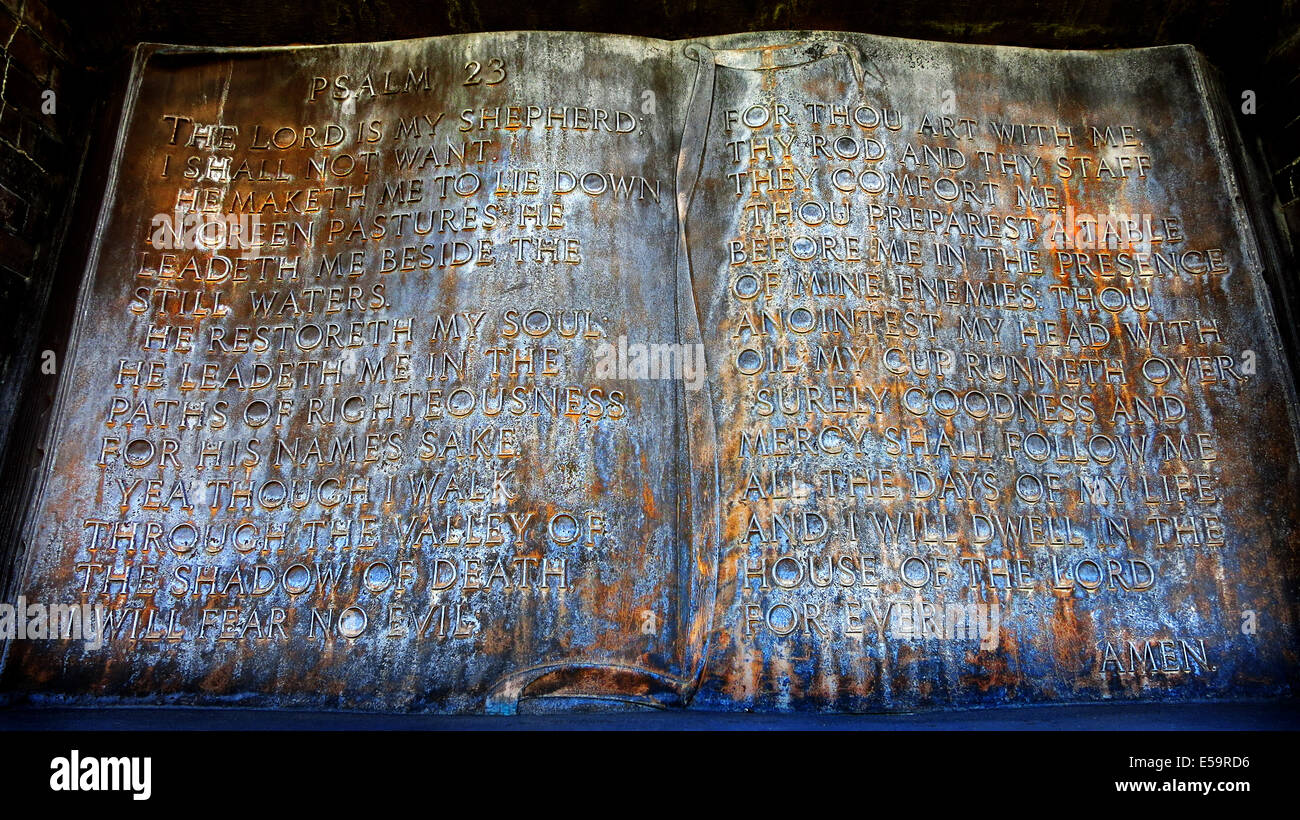 PSALM 23
THE LORD IS MY SHEPHERD;
I SHALL NOT WANT.
HE MAKETH ME TO LIE DOWN
IN GREEN PASTURES: HE
LEADETH ME BESIDE THE
STILL WATERS.
HE RESTORETH MY SOUL:
HE LEADETH ME IN THE
PATHS OF RIGHTEOUSNESS
FOR HIS NAME'S SAKE
YEA THOUGH I WALK
THROUGH THE VALLEY OF
THE SHADOW OF DEATH
I WILL FEAR NO EVIL:
FOR THOU ART WITH ME:
THY ROD AND THY STAFF
THEY COMFORT ME.
THOU PREPAREST A TABLE
BEFORE ME IN THE PRESENCE
OF MINE ENEMIES: THOU
ANOINTEST MY HEAD WITH
OIL MY CUP RUNNETH OVER.
SURELY GOODNESS AND
MERCY SHALL FOLLOW ME
ALL THE DAYS OF MY LIFE
AND I WILL DWELL IN THE
HOUSE OF THE LORD
FOR EVER.
AMEN.
alamy stock photo
E59RD6
www.alamy.com